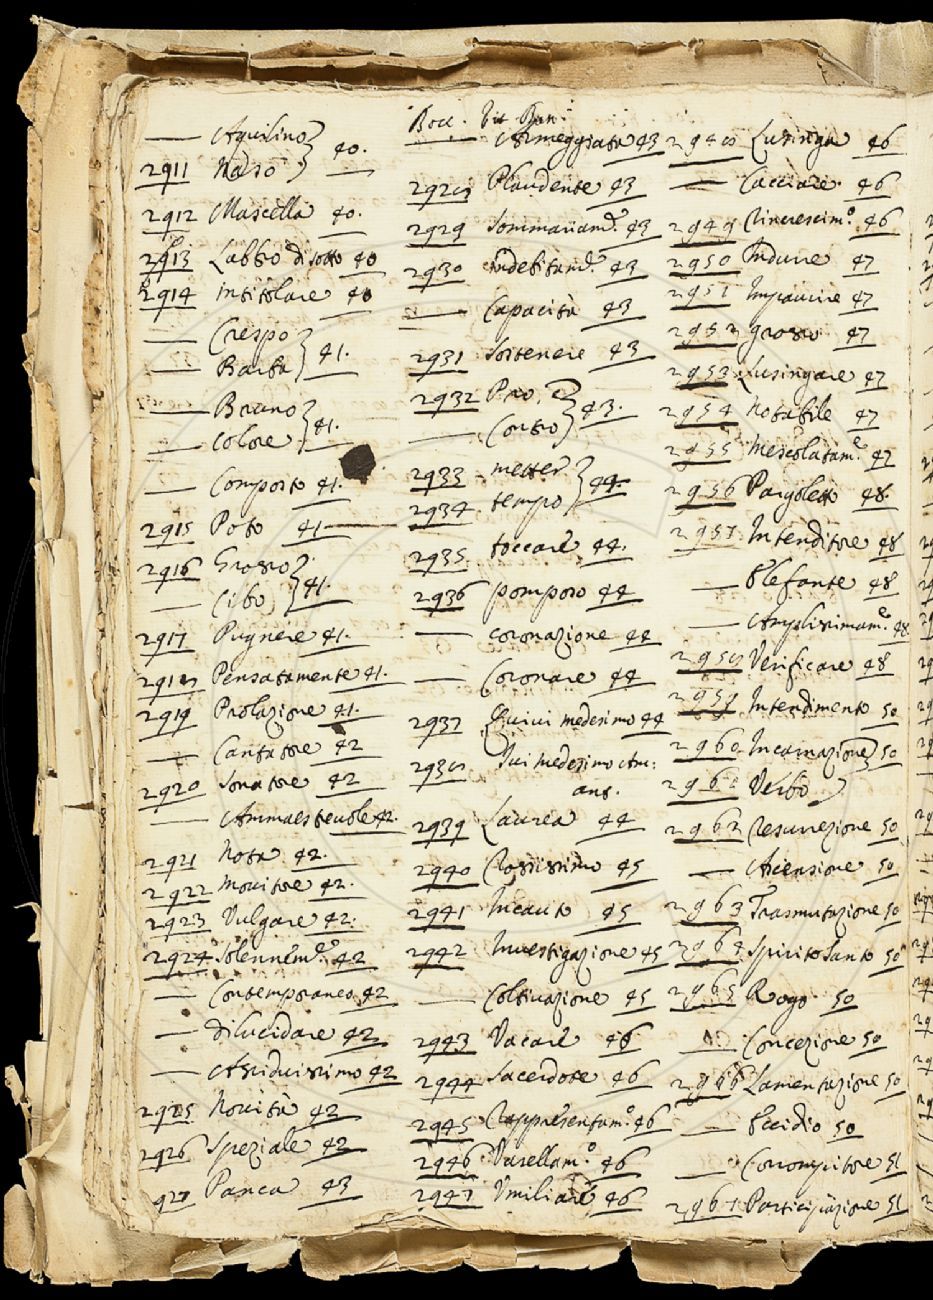 Bocc. Vit. Dan.
— Aquilino } 40.
2911 Naso }
2912 Mascella 40.
2913 Labbro di sotto 40
2914 Intitolare 40
— Crespo } 41.
— Barba }
— Bruno } 41.
— Colore }
— Composto 41.
2915 Poto 41
2916 Grosso } 41.
— Cibo }
2917 Pugnere 41.
2918 Pensatamente 41.
2919 Prolazione 41.
— Cantatore 42
2920 Sonatore 42
— Ammaestreuole 42.
2921 Nota 42.
2922 Mouitore 42.
2923 Vulgare 42.
2924 Solennem.e 42
— Contemporaneo 42
— Dilucidare 42
— Assiduissimo 42
2925 Nouità 42
2926 Speziale 42
2927 Panca 43
— Armeggiata 43
2928 Plaudente 43
2929 Sommariam.e 43
2930 Indebitam.e 43
— Capacità 43
2931 Sostenere 43
2932 Pro, e } 43.
— Contro }
2933 metter } 44.
2934 tempo }
2935 toccare 44.
2936 pomposo 44
— coronazione 44
— Coronare 44
2937 Quiui medesimo 44
2938 Iui medesimo
2939 Laurea 44
2940 Rossissimo 45
2941 Incauto 45
2942 Inuestigazione 45
— Coltiuazione 45
2943 Vacare 46
2944 Sacerdote 46
2945 Rappresentam.o 46
2946 Vasellam.o 46
2947 Vmiliare 46
2948 Lusinga 46
— Cacciare 46
2949 Rincrescim.o 46
2950 Indurre 47
2951 Impaurire 47
2952 grosso 47
2953 Lusingare 47
2954 Notabile 47
2955 Mescolatam.e 47
2956 Pargoletto 48.
2957 Intenditore 48
— Elefante 48
— Amplissimam.e 48
2958 Verificare 48
2959 Intendimento 50
2960 Incarnazione } 50
2961 Verbo }
2962 Resurrezione 50
— Ascensione 50
2963 Trasmutazione 50
2964 Spirito Santo 50
2965 Rogo 50
— Concezione 50
2966 Lamentazione 50
— Eccidio 50
— Corrompitore 51
2967 Participazione 51